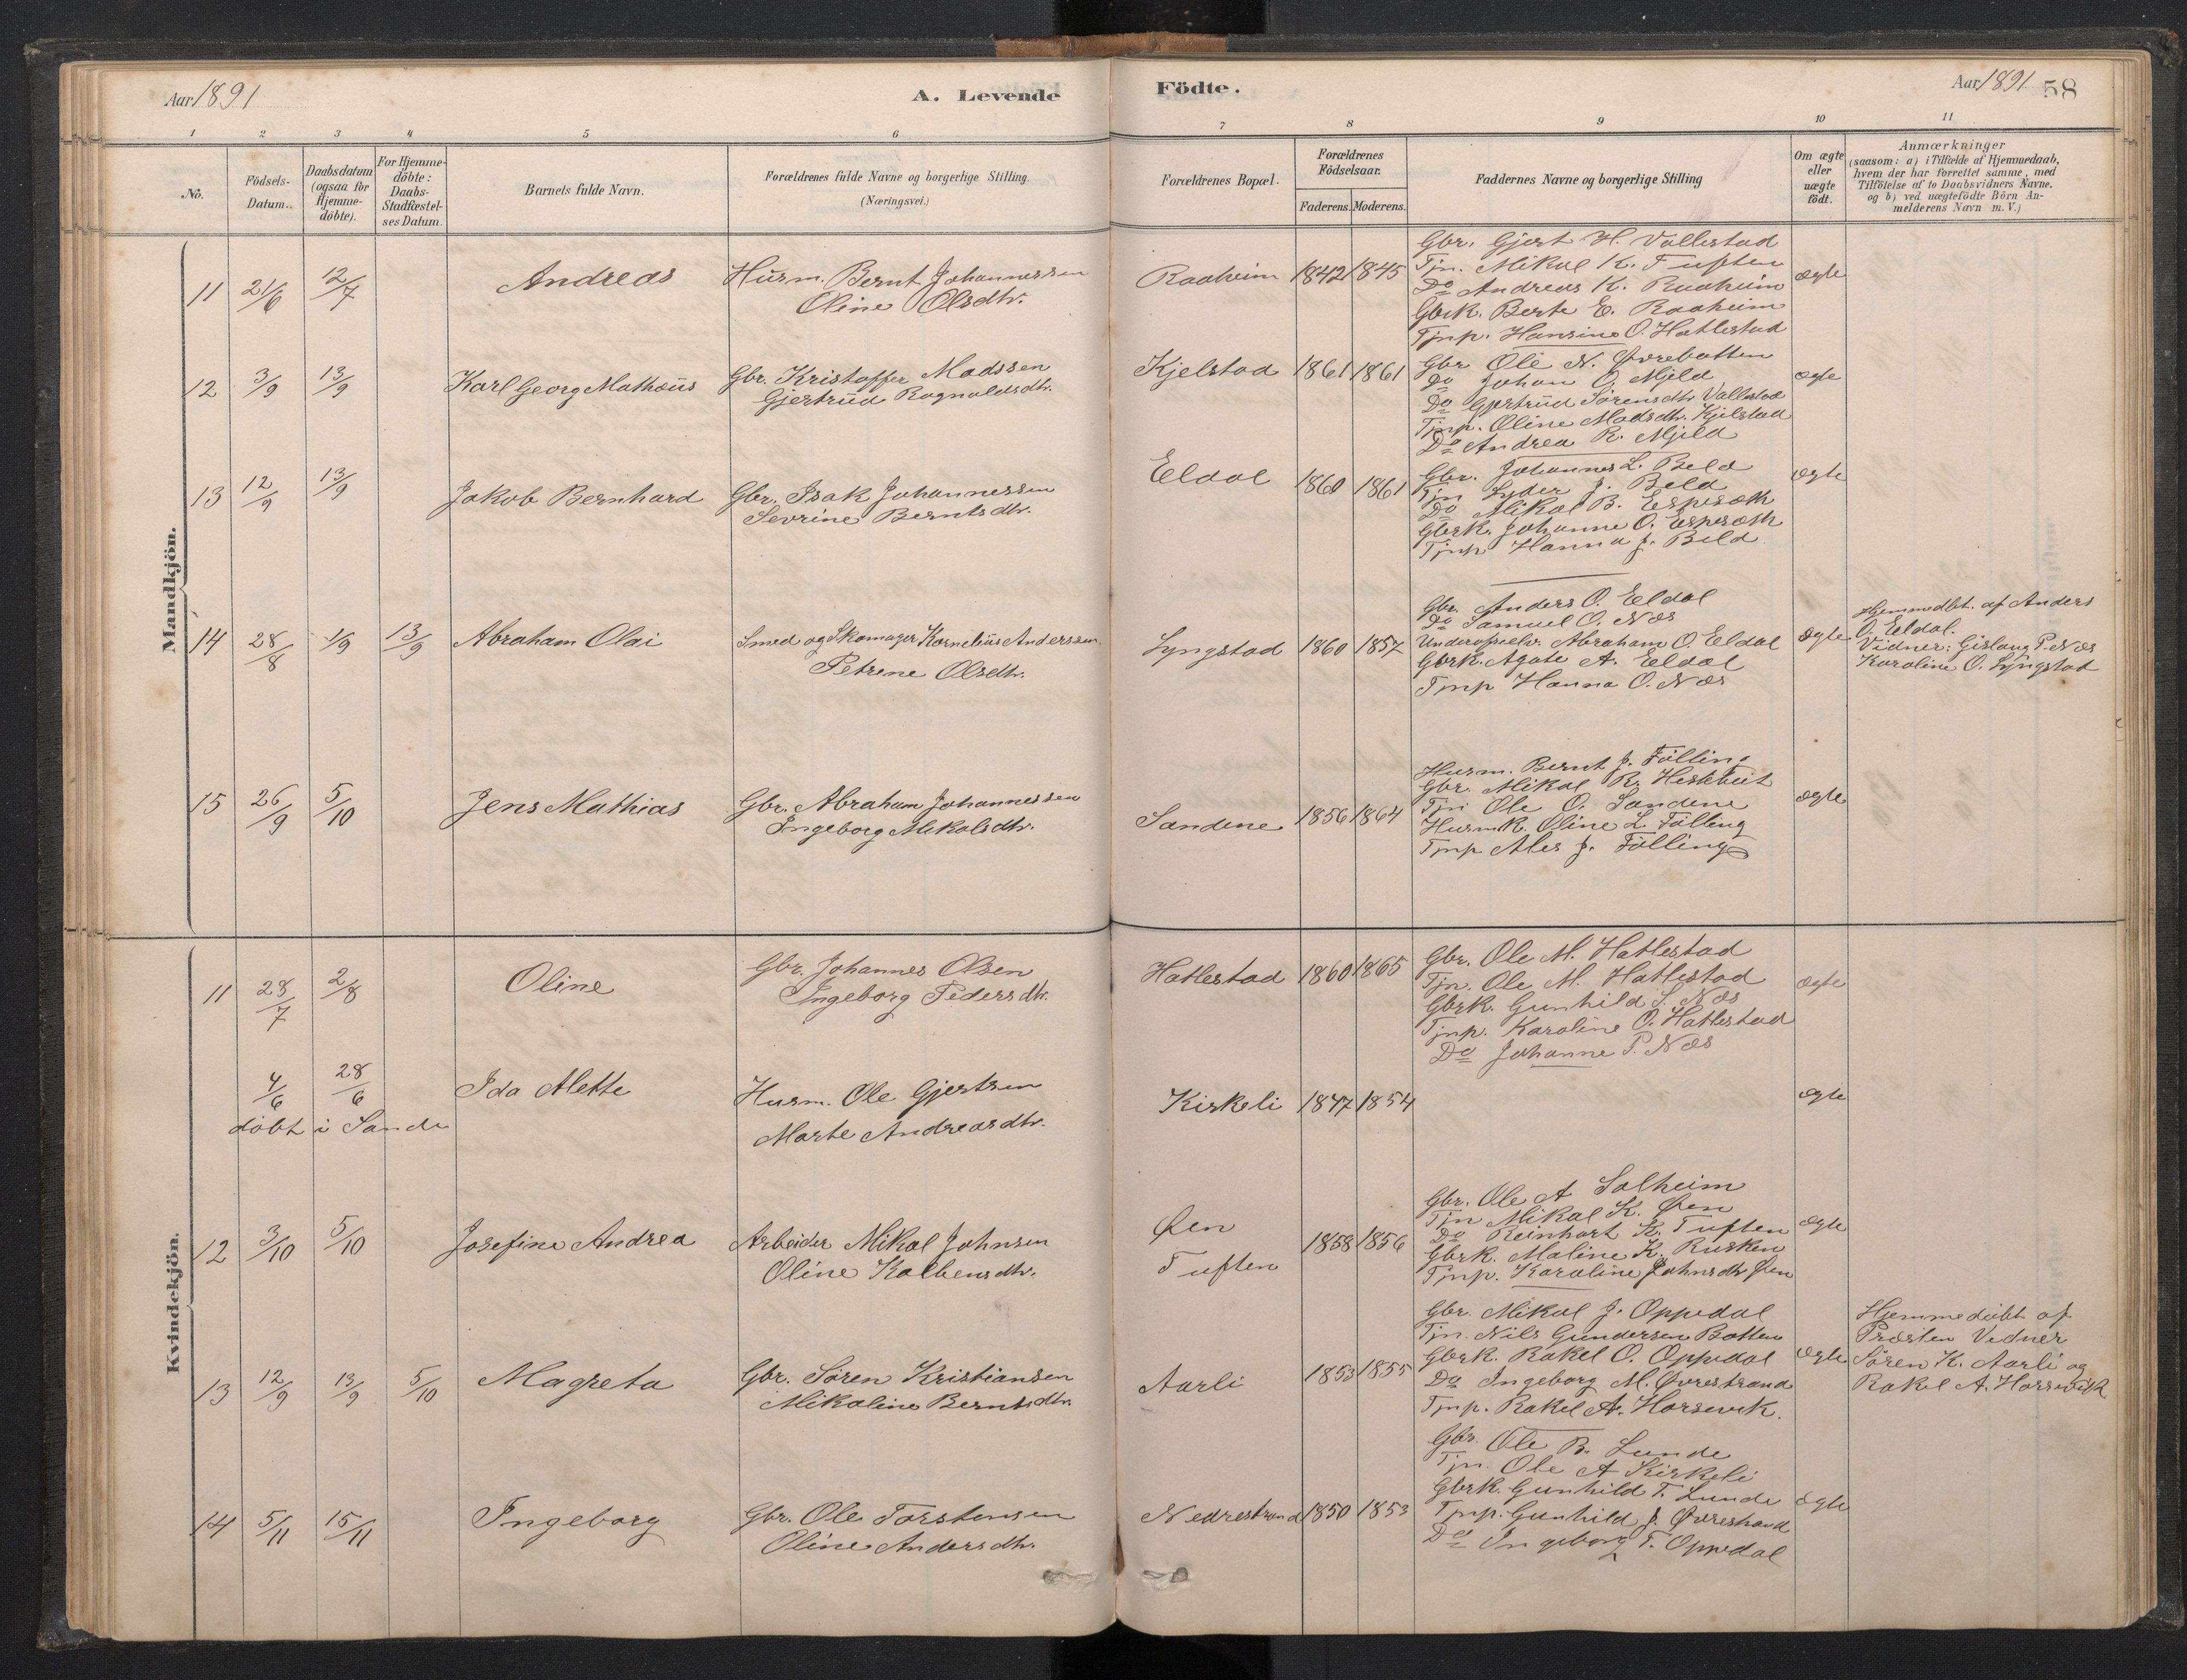 Aar 1891
A. Levende
Födte.
Aar 1891
58
1 2 3 4 5 6 7 8 9 10 11
No.
Födsels-Datum.
Daabsdatum (ogsaa for Hjemme-döbte).
For Hjemme-döbte: Daabs-Stadfæstel-ses Datum.
Barnets fulde Navn.
Forældrenes fulde Navne og borgerlige Stilling. (Næringsvei.)
Forældrenes Bopæl.
Forældrenes Födselsaar.
Faderens. Moderens.
Faddernes Navne og borgerlige Stilling
Om ægte eller uægte födt.
Anmærkninger
(saasom: a) i Tilfælde af Hjemmedaab, hvem der har forrettet samme, med Tilföielse af to Daabsvidners Navne. og b) ved uægtefödte Börn An-melderens Navn m. V.)
Mandkjön.
11 21/6 12/7 Andreas Husm. Bernt Johannessen
Oline Olsdtr.
Raaheim 1842 1845
Gbr. Gjert H. Vallestad
Tjn. Mikal K. Tuften
Do Andreas K. Raaheim
Gbrk. Berte E. Raaheim
Tjnp. Hansine O. Hatlestad
ægte
12 3/9 13/9 Karl Georg Mathæus Gbr. Kristoffer Madssen
Gjertrud Ragnaldsdtr.
Kjelstad 1861 1861
Gbr Ole N. Øvrebotten
Do Johan O. Mjeld
Do Gjertrud Sørensdtr Vallestad
Tjnp. Oline Madsdtr. Kjelstad
Do Andrea R. Mjeld
ægte
13 12/9 13/9 Jakob Bernhard Gbr. Isak Johannessen
Sevrine Berntsdtr.
Eldal 1860 1861
Gbr. Johannes L. Beld
Tjn Lyder J. Beld
Do Mikal B. Espesæth
Gbrk. Johanne O. Espesæth
Tjnp Hanna J. Beld
ægte
14 28/8 1/9 13/9 Abraham Olai Smed og Skomager Kornelius Anderssen
Petrene Olsdtr.
Lyngstad 1860 1857
Gbr. Anders O. Eldal
Do Samuel O. Næs
Abraham O. Eldal
Gbrk. Agate A. Eldal
Tjnp Hanna O. Næs
ægte
Hjemmedbt. af Anders
O. Eldal.
Vidner: Gislaug P. Næs
Karoline O. Lyngstad
15 26/9 5/10 Jens Mathias Gbr. Abraham Johannessen
Ingeborg Mikalsdtr.
Sandene 1856 1864
Husm. Bernt J. Fölling
Gbr. Mikal R.
Tjn Ole O. Sandene
Husmk. Oline L. Fölling
Tjnp Ales J. Fölling
ægte
Kvindekjön.
11 28/7 2/8 Oline Gbr. Johannes Olsen
Ingeborg Pedersdtr.
Hatlestad 1860 1865
Gbr. Ole M. Hatlestad
Tjn. Ole M. Hatlestad
Gbrk. Gunhild S. Næs
Tjnp. Karoline O. Hatlestad
Do Johanne P. Næs
ægte
4/6 28/6 Ida Alette Husm. Ole Gjertsen
döbt i Sande
Marte Andreasdtr.
Kirkeli 1847 1854
ægte
12 3/10 5/10 Josefine Andrea Arbeider Mikal Johnsen
Oline Kolbensdtr.
Øen
Tuften
1858 1856
Gbr. Ole A Solheim
Tjn Mikal K. Øen
Do Reinhart K. Tuften
Gbrk. Maline K. Rusken
Tjnp. Karoline Johnsdtr Øen
ægte
13 12/9 13/9 5/10 Magreta Gbr. Sören Kristiansen
Mikaline Berntsdtr.
Aarli 1853 1855
Gbr. Mikal J. Oppedal
Tjn. Nils Gundersen Botten
Gbrk. Rakel O. Oppedal
Do Ingeborg M. Øvrestrand
Tjnp. Rakel A. Horsevik.
ægte
Hjemmedöbt af
Præsten Vidner
Sören K. Aarli og
Rakel A. Horsevik
14 5/11 15/11 Ingeborg Gbr. Ole Torstensen
Oline Andersdtr.
Nedrestrand 1850 1853
Gbr. Ole B. Lunde
Tjn. Ole A Kirkeli
Gbrk. Gunhild T. Lunde
Tjnp. Gunhild J. Øvrestrand
Do Ingeborg T. Oppedal
ægte